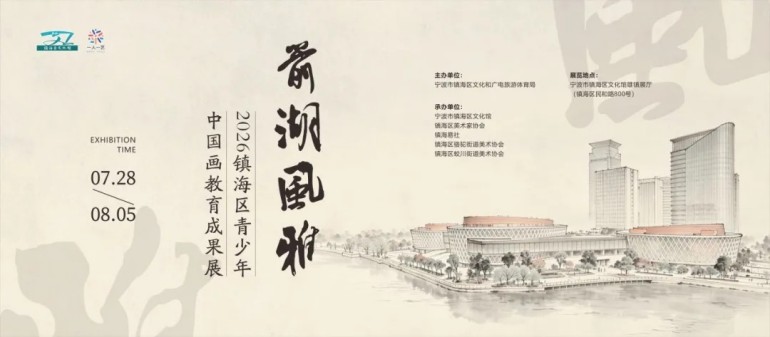 一人一艺
EXHIBITION
TIME
07.28
08.05
箭湖風雅
2026镇海区青少年
中国画教育成果展
主办单位:
宁波市镇海区文化和广电旅游体育局
承办单位:
宁波市镇海区文化馆
镇海区美术家协会
镇海巷社
镇海区骆驼街道美术协会
镇海区蛟川街道美术协会
展览地点:
宁波市镇海区文化馆雄镇展厅
(镇海区民和路800号)